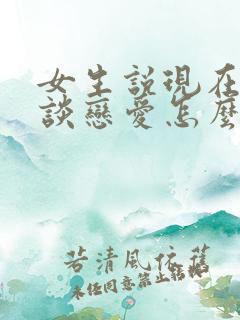 女生説現在
談戀愛怎麼
若清風依舊
未任同意禁止轉載